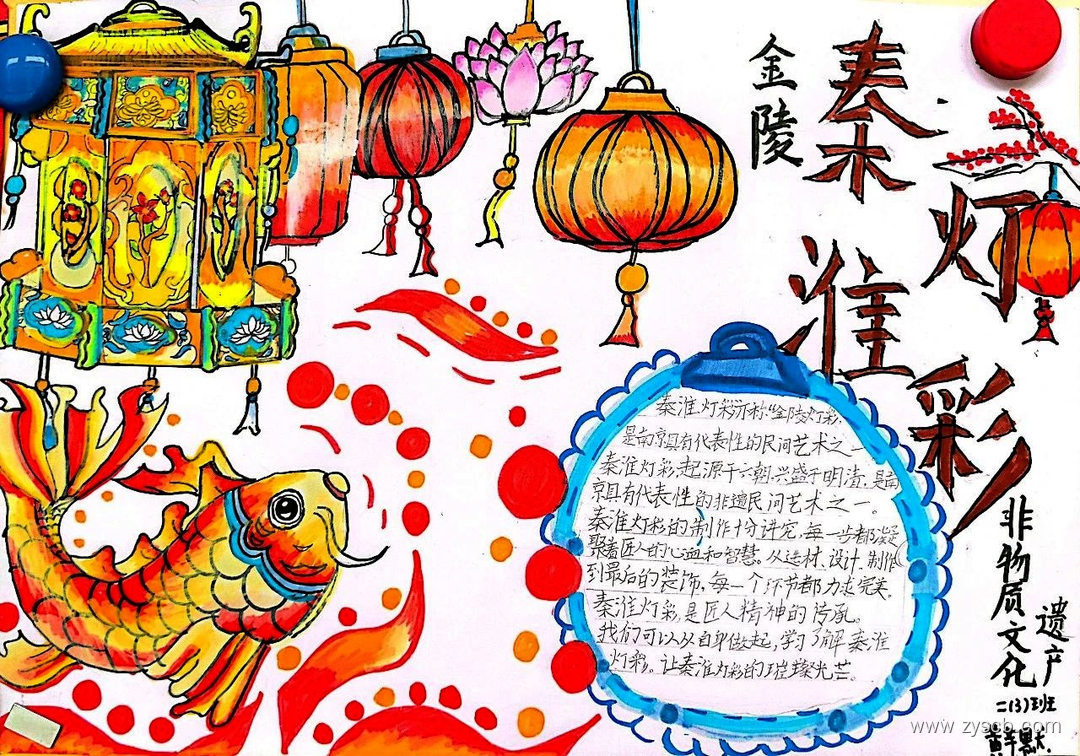 金陵
秦淮
灯彩
非物质文化
遗产
秦淮灯彩亦称"金陵灯彩,
是南京具有代表性的民间艺术之一
秦淮灯彩,起源于六朝,兴盛于明清,是南
京具有代表性的非遗民间艺术之一。
秦淮灯彩的制作十分讲究,每一步都凝
聚着匠人的心血和智慧。从选材、设计、制作
到最后的装饰,每一个环节都力求完美,
秦淮灯彩,是匠人精神的传承。
我们可以从自身做起,学习了解秦淮
灯彩。让秦淮灯彩的璀璨光芒。
二(3)班
www.zyscb.com